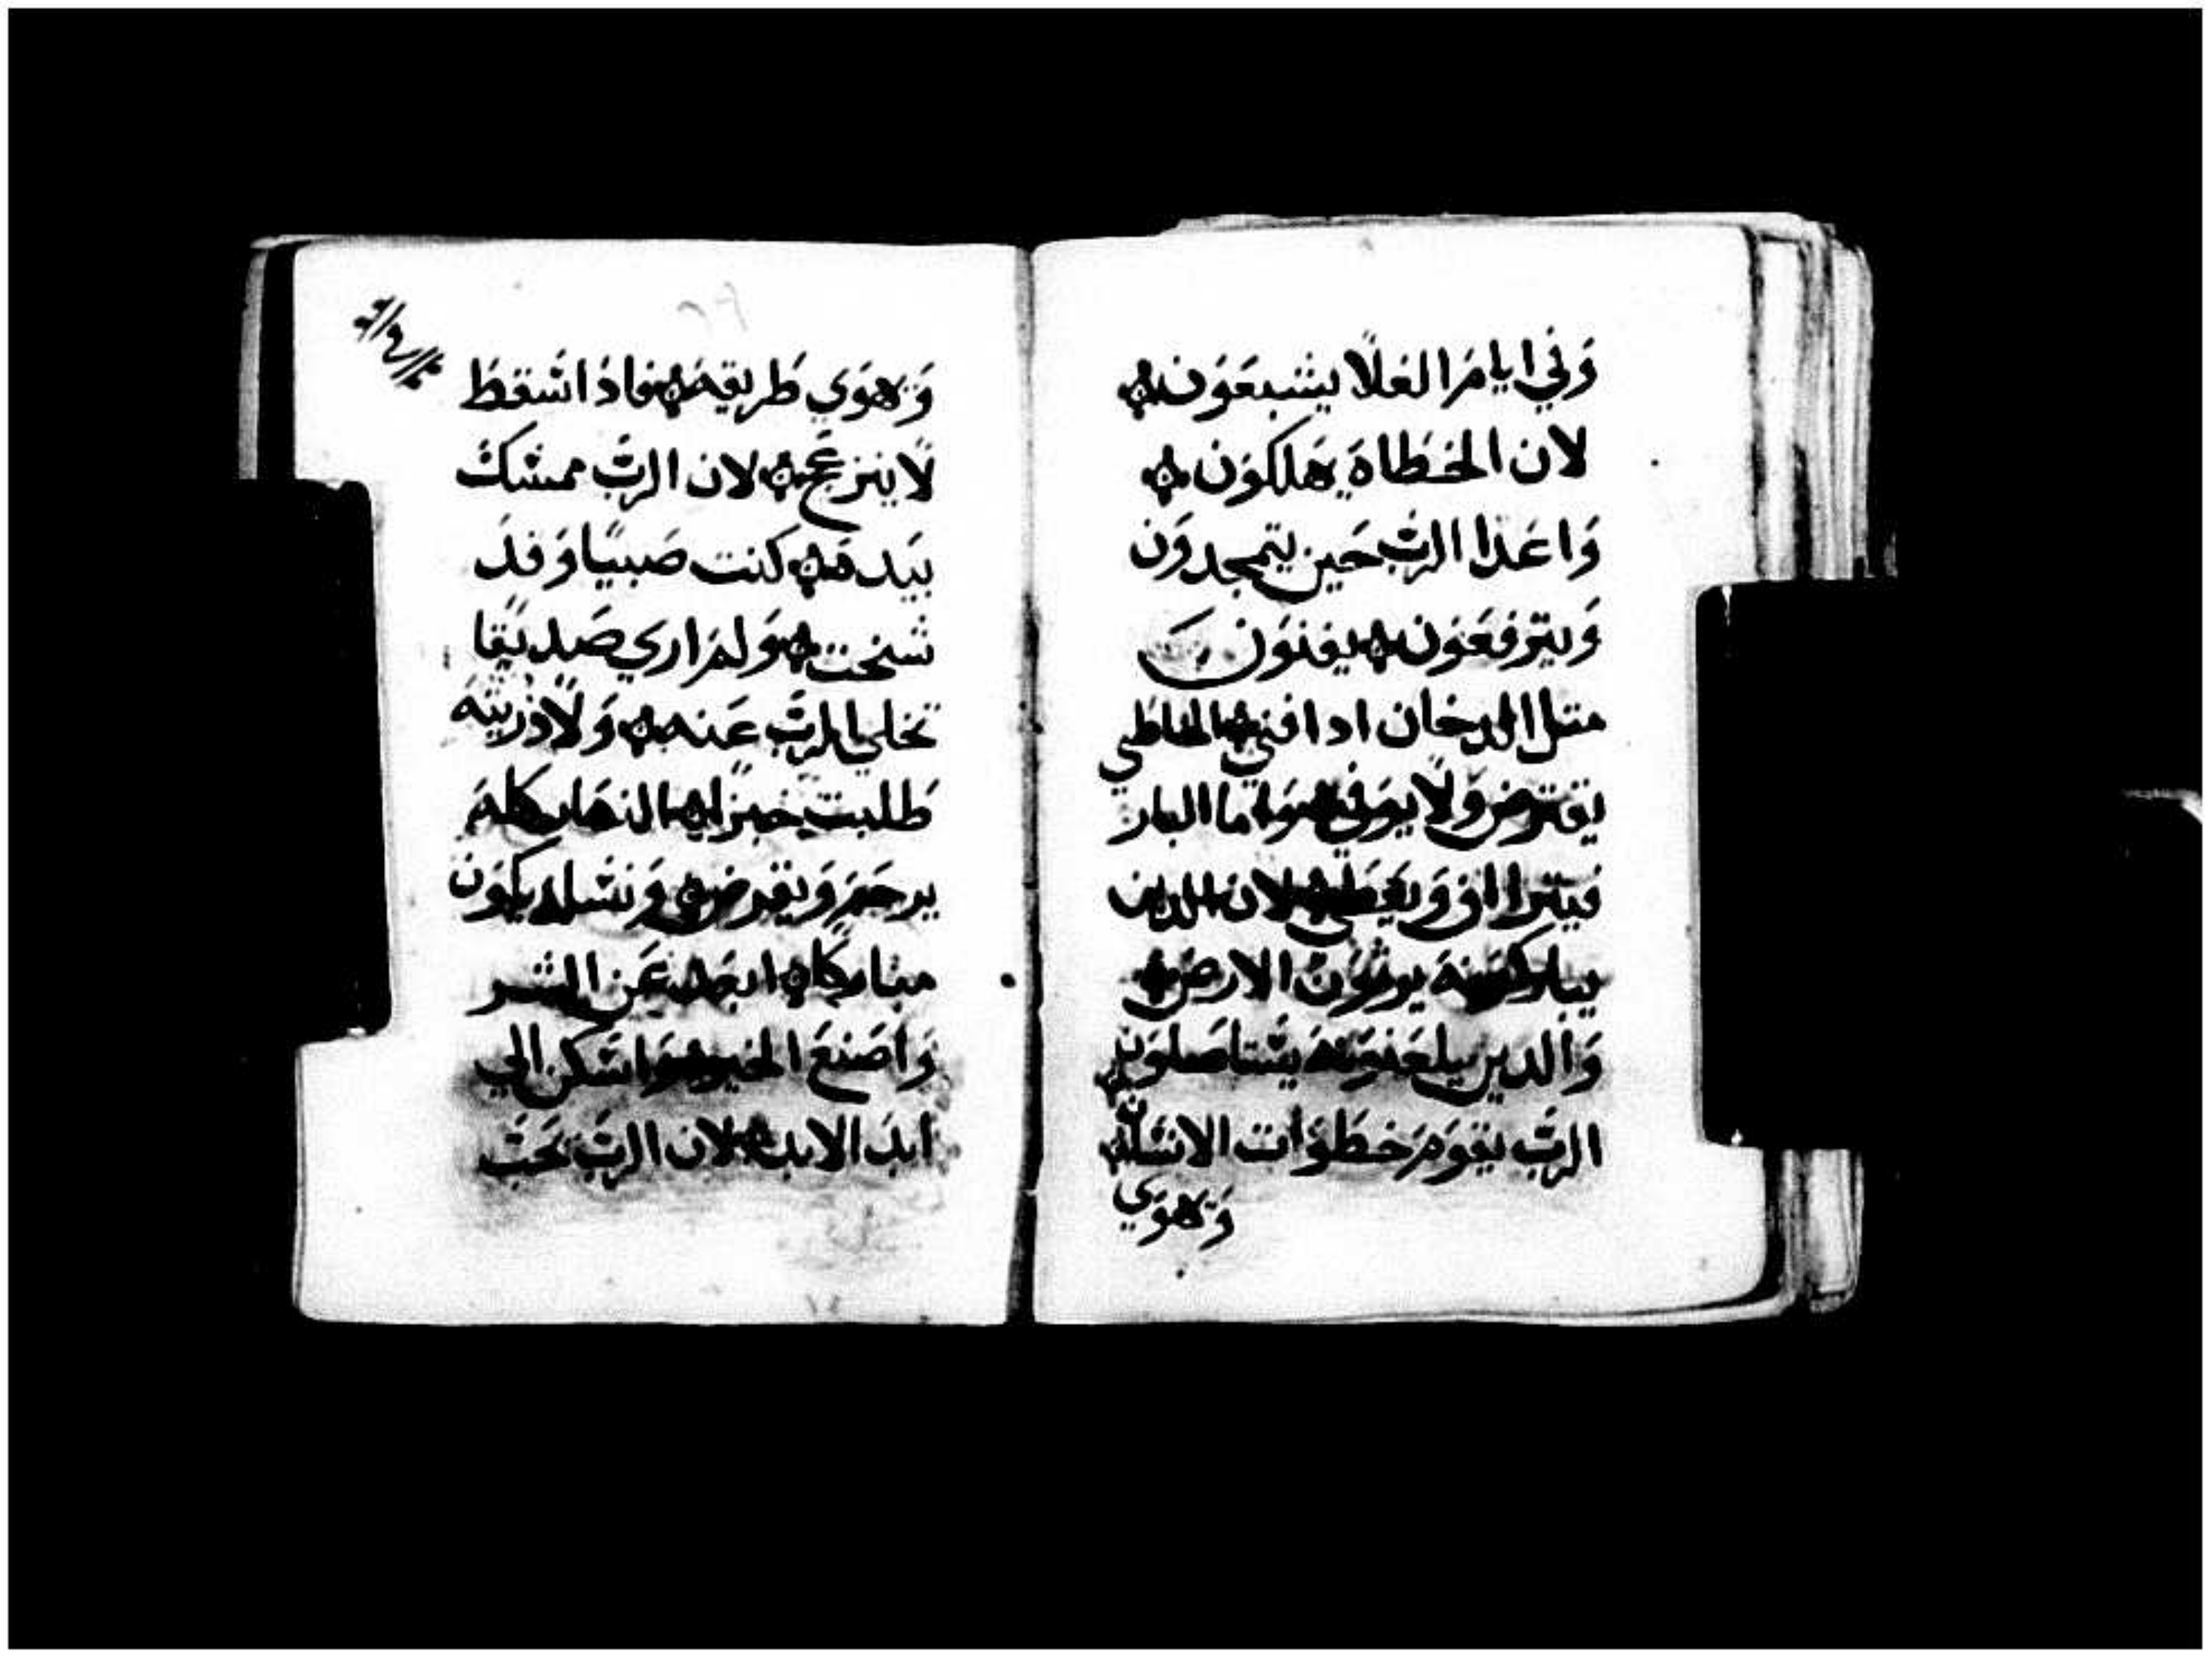 وَفي ايامَ الغلَا يشبعَوَن
لان الخطاة يَهلكوَن
وَاعَدا الربّ حَين يتمجدوَن
وَيترفعَوَن يفنوَن
متل الدخان ادا فني الخاطي
يقترض وَلَا يوَفي وَاما البار
فيتراف وَيعَطي لان الدين
يباركوَنه يرثوَن الارض
وَالدين يلعَنوَنه يستاصلوَن
الربّ يقوَم خطوَات الانسان
وَيهوَي
وَيهوَي طَريقه فادَا اسَقطَ
لَا ينزعَج لان الربّ ممسَك
بيَده كنت صَبيًا وَقدَ
شخت وَلم اري صَديقًا
تخلي الربّ عَنه وَلَا ذريته
طَلبت خبزا النهَار كله
يرحَم وَيقرض وَنسَله يكوَن
مباركا ابعَد عَن الشر
وَاصَنعَ الخير وَاسَكن الي
ابدَ الابد لان الربّ يحَب